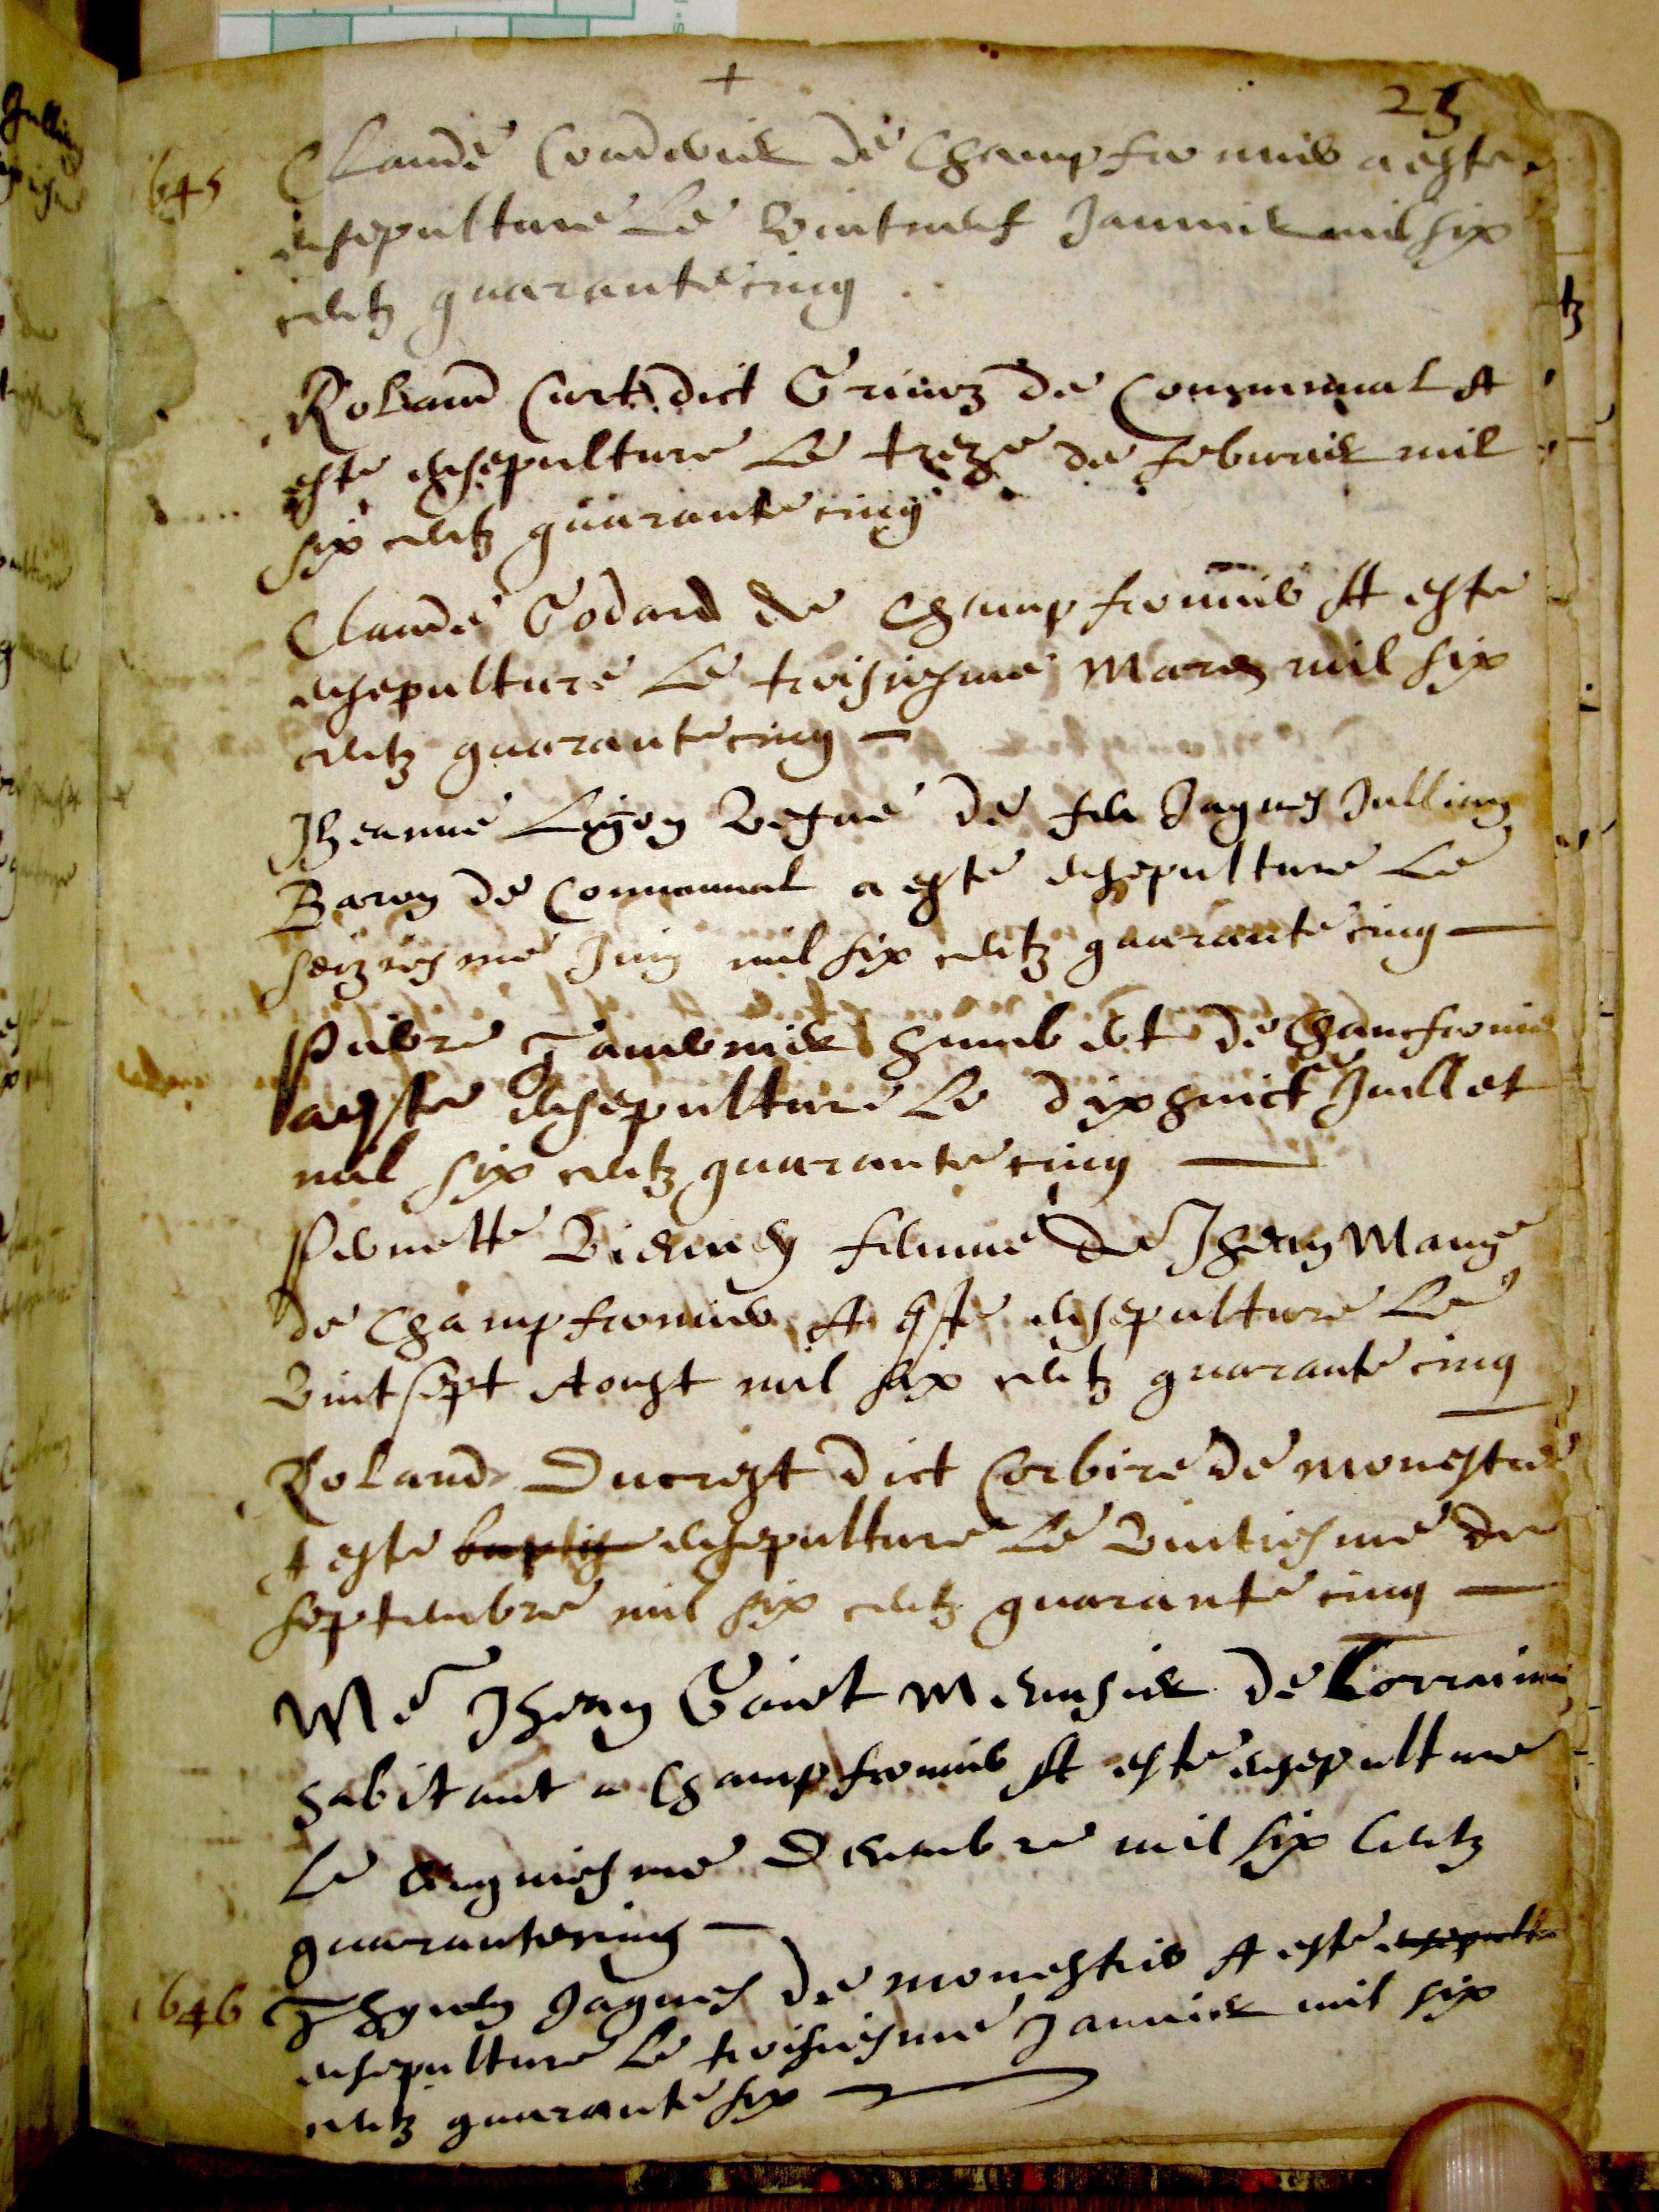 +
23
1645
Claude Coudurier de Champfromier a esté
ensepulturé le vintneuf Januier mil six
centz quarantecinq
Roland Curt dict Grinez de Communal A
esté ensepulturé le treze de Febvrier mil
six centz quarantecinq
Claude Godard de Champfromier At esté
ensepulturé le troisiesme Mars mil six
centz quarantecinq —
Jheanne vefue de feu Jaques Julliang
Baron de Communal a esté ensepulturé le
seiziesme Juin mil six centz quarantecinq —
Pierre Tauernier Humbert de Chanfromie
a esté ensepulturé le dixhuict Juillet
mil six centz quarantecinq —
Pernette femme de Jhean Mange
de Champfromier A esté ensepulturé le
vintsept Aougt mil six centz quarantecinq
Roland Ducrest dict Corbire de monestier
A esté baptisé ensepulturé le vintiesme de
septembre mil six centz quarantecinq —
Me Jhean de Lorraine
habitant a Champfromier At esté ensepulturé
le cinquiesme Decembre mil six Centz
quarantecinq —
1646
Jaques de monestier A esté ensepultu
ensepulturé le troisiesme Januier mil six
centz quarante six —